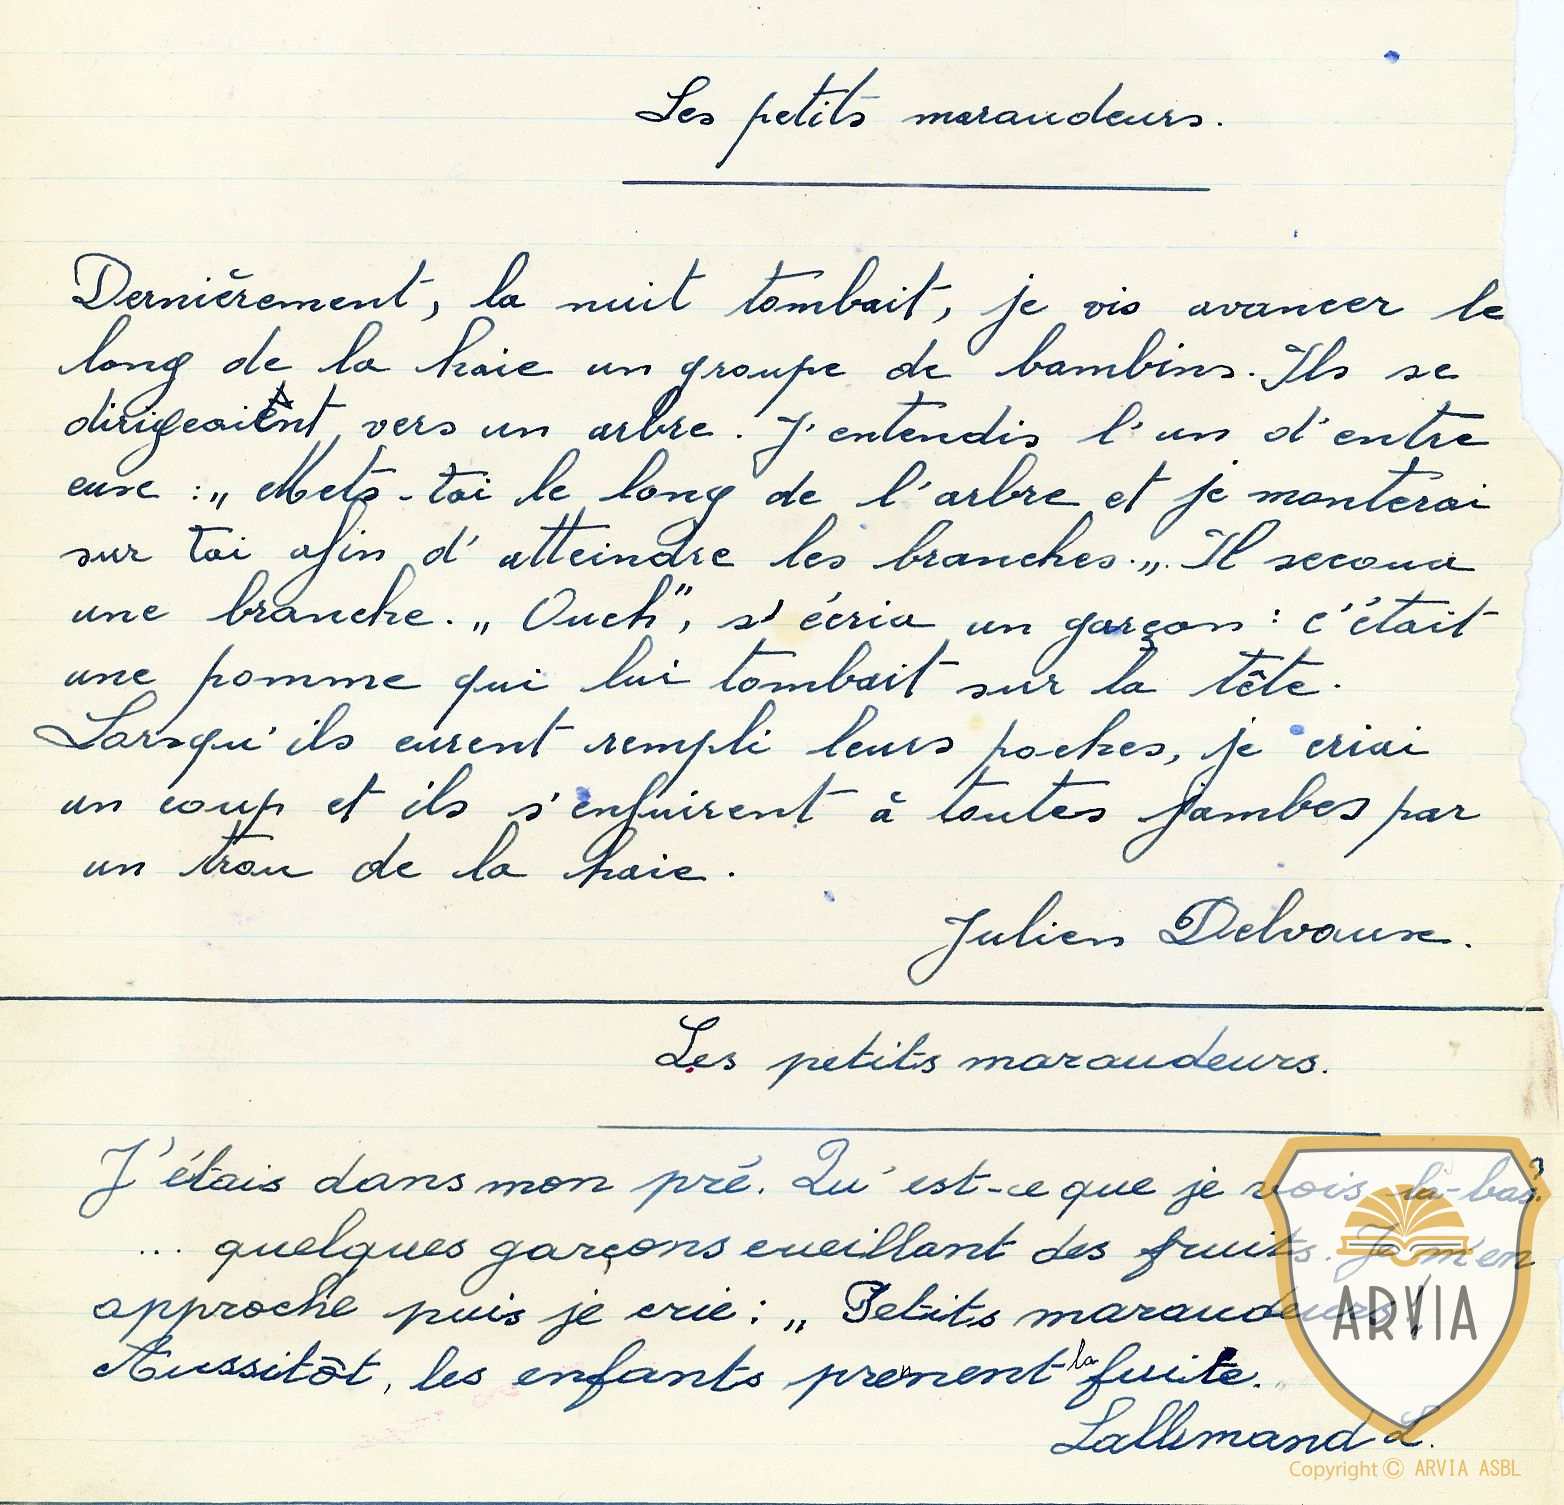 Les petits maraudeurs.
Dernièrement, la nuit tombait, je vis avancer le
long de la haie un groupe de bambins. Ils se
dirigeaient vers un arbre. J'entendis l'un d'entre
eux : „ Mets-toi le long de l'arbre et je monterai
sur toi afin d'atteindre les branches.„ Il secoua
une branche. „ Ouch", s'écria un garçon : c'était
une pomme qui lui tombait sur la tête.
Lorsqu'ils eurent rempli leurs poches, je criai
un coup et ils s'enfuirent à toutes jambes par
un trou de la haie.
Julien Delvaux.
Les petits maraudeurs.
J'étais dans mon pré. Qu'est-ce que je vois là-bas?
... quelques garçons cueillant des fruits. Je m'en
approche puis je crie : „ Petits maraudeurs !
Aussitôt, les enfants prennent la fuite.
Lallemand L.
ARVIA
Copyright © ARVIA ASBL